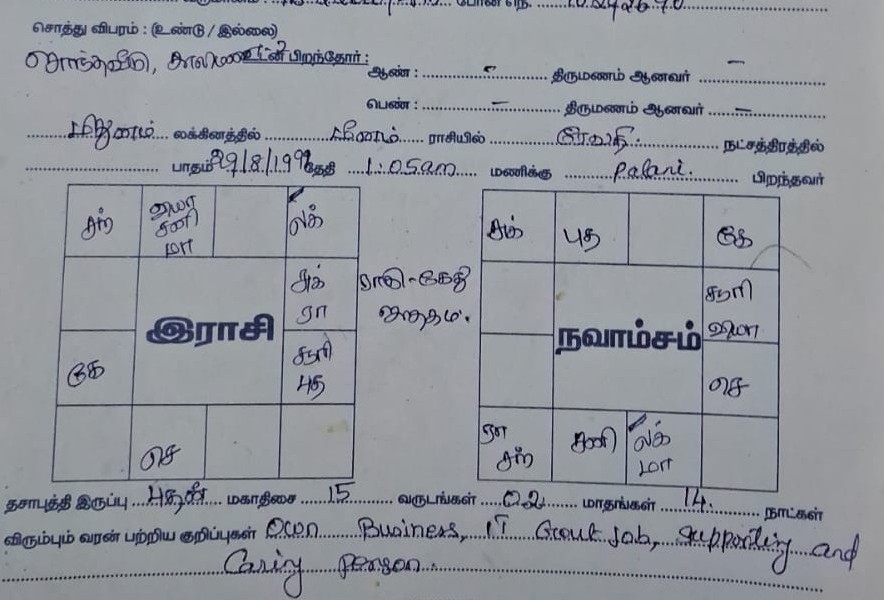 போன் நெ.
சொத்து விபரம் : (உண்டு / இல்லை)
சொந்தவீடு, உடன் பிறந்தோர் : ஆண் : - திருமணம் ஆனவர் -
பெண் : - திருமணம் ஆனவர் -
மிதுனம் லக்கினத்தில் மீனம் ராசியில் ரேவதி நட்சத்திரத்தில்
பாதம் 29/8/1999 தேதி 1:05am மணிக்கு Palani. பிறந்தவர்
சந் குரு சனி மா லக்
சுக் ரா
இராசி
கே சூரி புத
செ
ராகு-கேது ஜாதகம்.
சுக் புத கே
சூரி குரு
நவாம்சம்
செ
ரா சந் சனி லக் மா
தசாபுத்தி இருப்பு புதன் மகாதிசை 15 வருடங்கள் 02 மாதங்கள் 14 நாட்கள்
விரும்பும் வரன் பற்றிய குறிப்புகள் Own Business, IT Govt job, supporting and
Caring person.